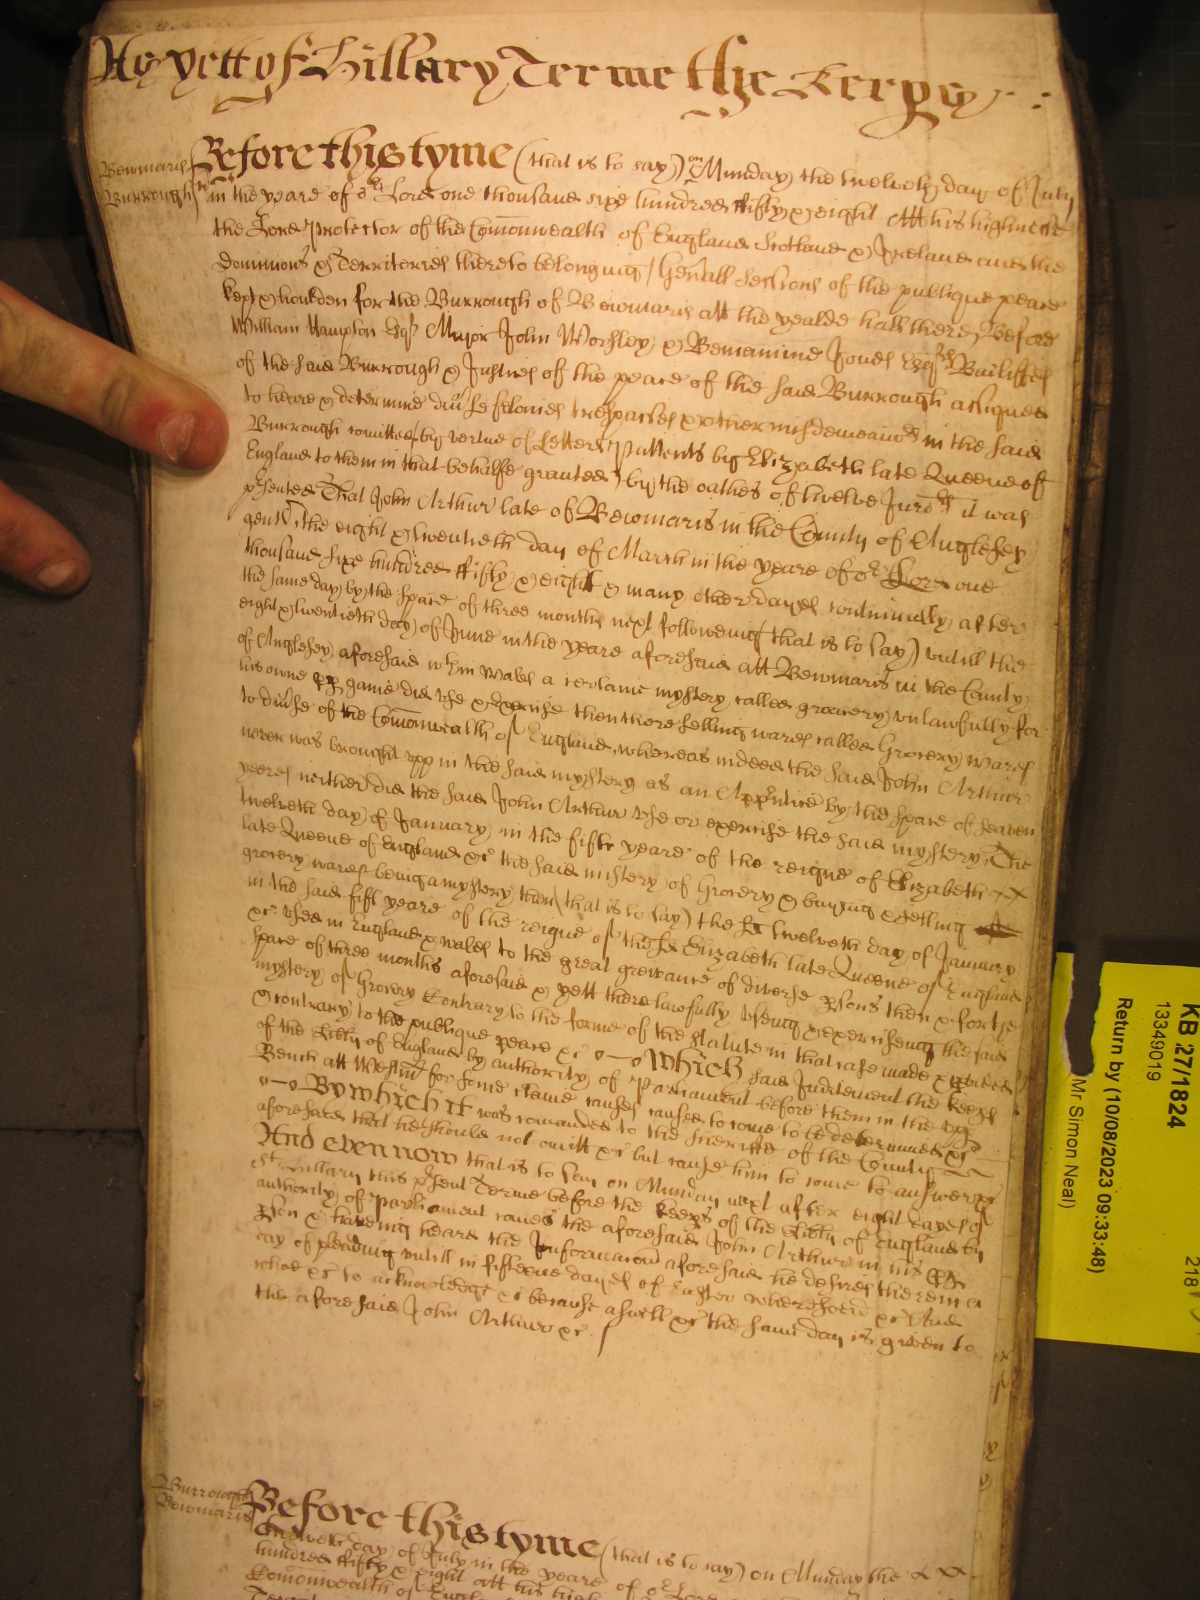 As yett of Hillary Terme The Keeps
Bewmaris
Burrough
Before this tyme (that is to say) on Munday the twelveth day of July
in the yeare of or Lord one thousand sixe hundred fifty & eight Att his highnesse
the Lord Protector of the Comonwealth of England Scotland & Ireland and the
Dominions & Territories thereto belonging genall sessions of the publique peace
kept & houlden for the Burrough of Bewmaris att the yealde hall there Before
William Hampton Esqr Maior John Worsley & Beniamine Jones Esqrs Bailiffes
of the said Burrough & Justices of the peace of the said Burrough assigned
to heare & determine divse felonies trespasses & other misdemeanors in the said
Burrough comitted by vertue of Letters Pattents by Elizabeth late Queene of
England to them in that behalfe granted by the oathes of twelve Jurors it was
psented That John Arthur late of Bewmaris in the County of Anglesey
gent the eight & twentieth day of March in the yeare of or Lord one
thousand sixe hundred fifty & eight & many other dayes continually after
the same day by the space of three months next following (that is to say) untill the
eight & twentieth day of June in the yeare aforesaid att Bewmaris in the County
of Anglesey aforesaid wthin Wales a certaine mystery called grocery unlawfully for
his owne game did use & exercise then there selling wares called Grocery wares
to divse of the Comonwealth of England, whereas indeed the said John Arthur
never was brought upp in the said mystery as an Apprentice by the space of seaven
yeares neither did the said John Arthur use or exercise the said mystery The
twelveth day of January in the fifte yeare of the reigne of Elizabeth
late Queene of England &c the said mistery of Grocery & buying & selling
grocery wares being a mystery then (that is to say) the sd twelveth day of January
in the said fift yeare of the reigne of the sd Elizabeth late Queene of England
&c used in England & Wales to the great grevance of diverse psons then & for the
space of three months aforesaid & yett there lawfully useing & exerciseing the said
mystery of Grocery Contrary to the forme of the statute in that case made & pvided
& contrary to the publique peace &c Which said Inditement the Keeps
of the libty of England by authority of Parliament before them in the upp
Bench att Westmr for some clame causes caused to come to be determined &c
By which it was comanded to the Sheriffe of the County
aforesaid that he should not omitt &c but cause him to come to answere &c
And even now that is to say on Munday next after eight dayes of
St Hillary this psent Terme before the keeps of the libty of England by
authority of Parliament comes the aforesaid John Arthur in his pp
pson & haveing heard the Informacon aforesaid he desires therein a
day of pleading untill in fifteene dayes of Easter wheresoevr &c And
who &c to acknowledge &c because aswell &c the same day is given to
the aforesaid John Arthur &c
Burrough
Bewmaris
Before this tyme (that is to say) on Munday the
twelveth day of July in the yeare of or Lord
hundred fifty & eight att his high
Comonwealth of England
KB 27/1824
13349019
Return by (10/08/2023 09:33:48)
Mr Simon Neal)